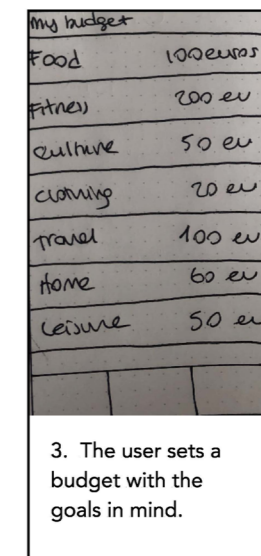 my budget
Food 100euros
Fitness 200 eu
culture 50 eu
clothing 20 eu
Travel 100 eu
Home 60 eu
Leisure 50 eu
3. The user sets a
budget with the
goals in mind.